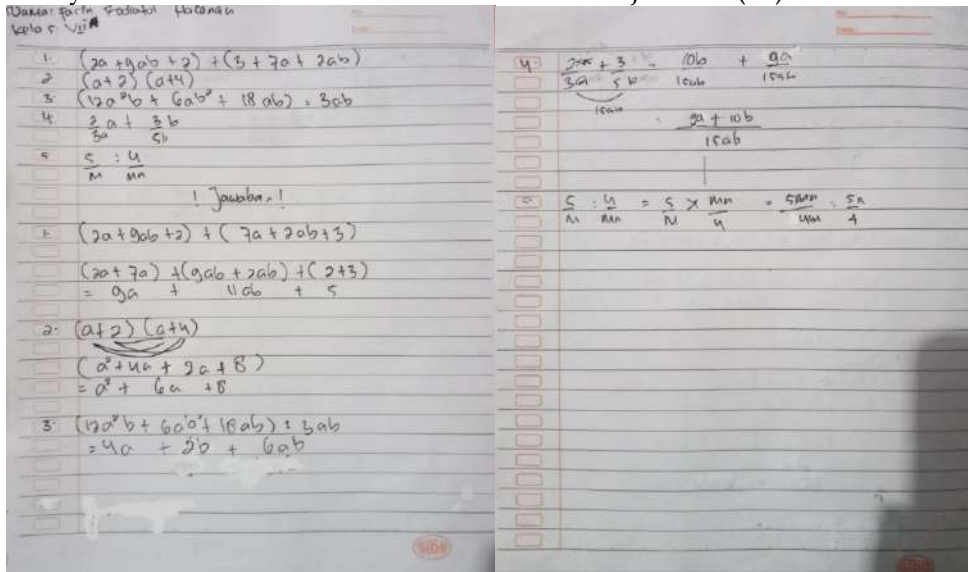 Nama: Facin Fadiatol Hasanah
Kelas: VII A
1. (2a + 9ab + 2) + (3 + 7a + 2ab)
2. (a+2) (a+4)
3. (12a²b + 6ab² + 18ab) : 3ab
4. 2/3a + 3/5b
5. 5/M : 4/Mn
! Jawaban !
1. (2a + 9ab + 2) + (7a + 2ab + 3)
(2a + 7a) + (9ab + 2ab) + (2+3)
= 9a + 11ab + 5
2. (a+2) (a+4)
(a² + 4a + 2a + 8)
= a² + 6a + 8
3. (12a²b + 6ab² + 18ab) : 3ab
= 4a + 2b + 6ab
4. 2/3a + 3/5b = 10b/15ab + 9a/15ab
15ab
= 9a + 10b/15ab
5. 5/M : 4/Mn = 5/M × Mn/4 = 5Mn/4M = 5n/4